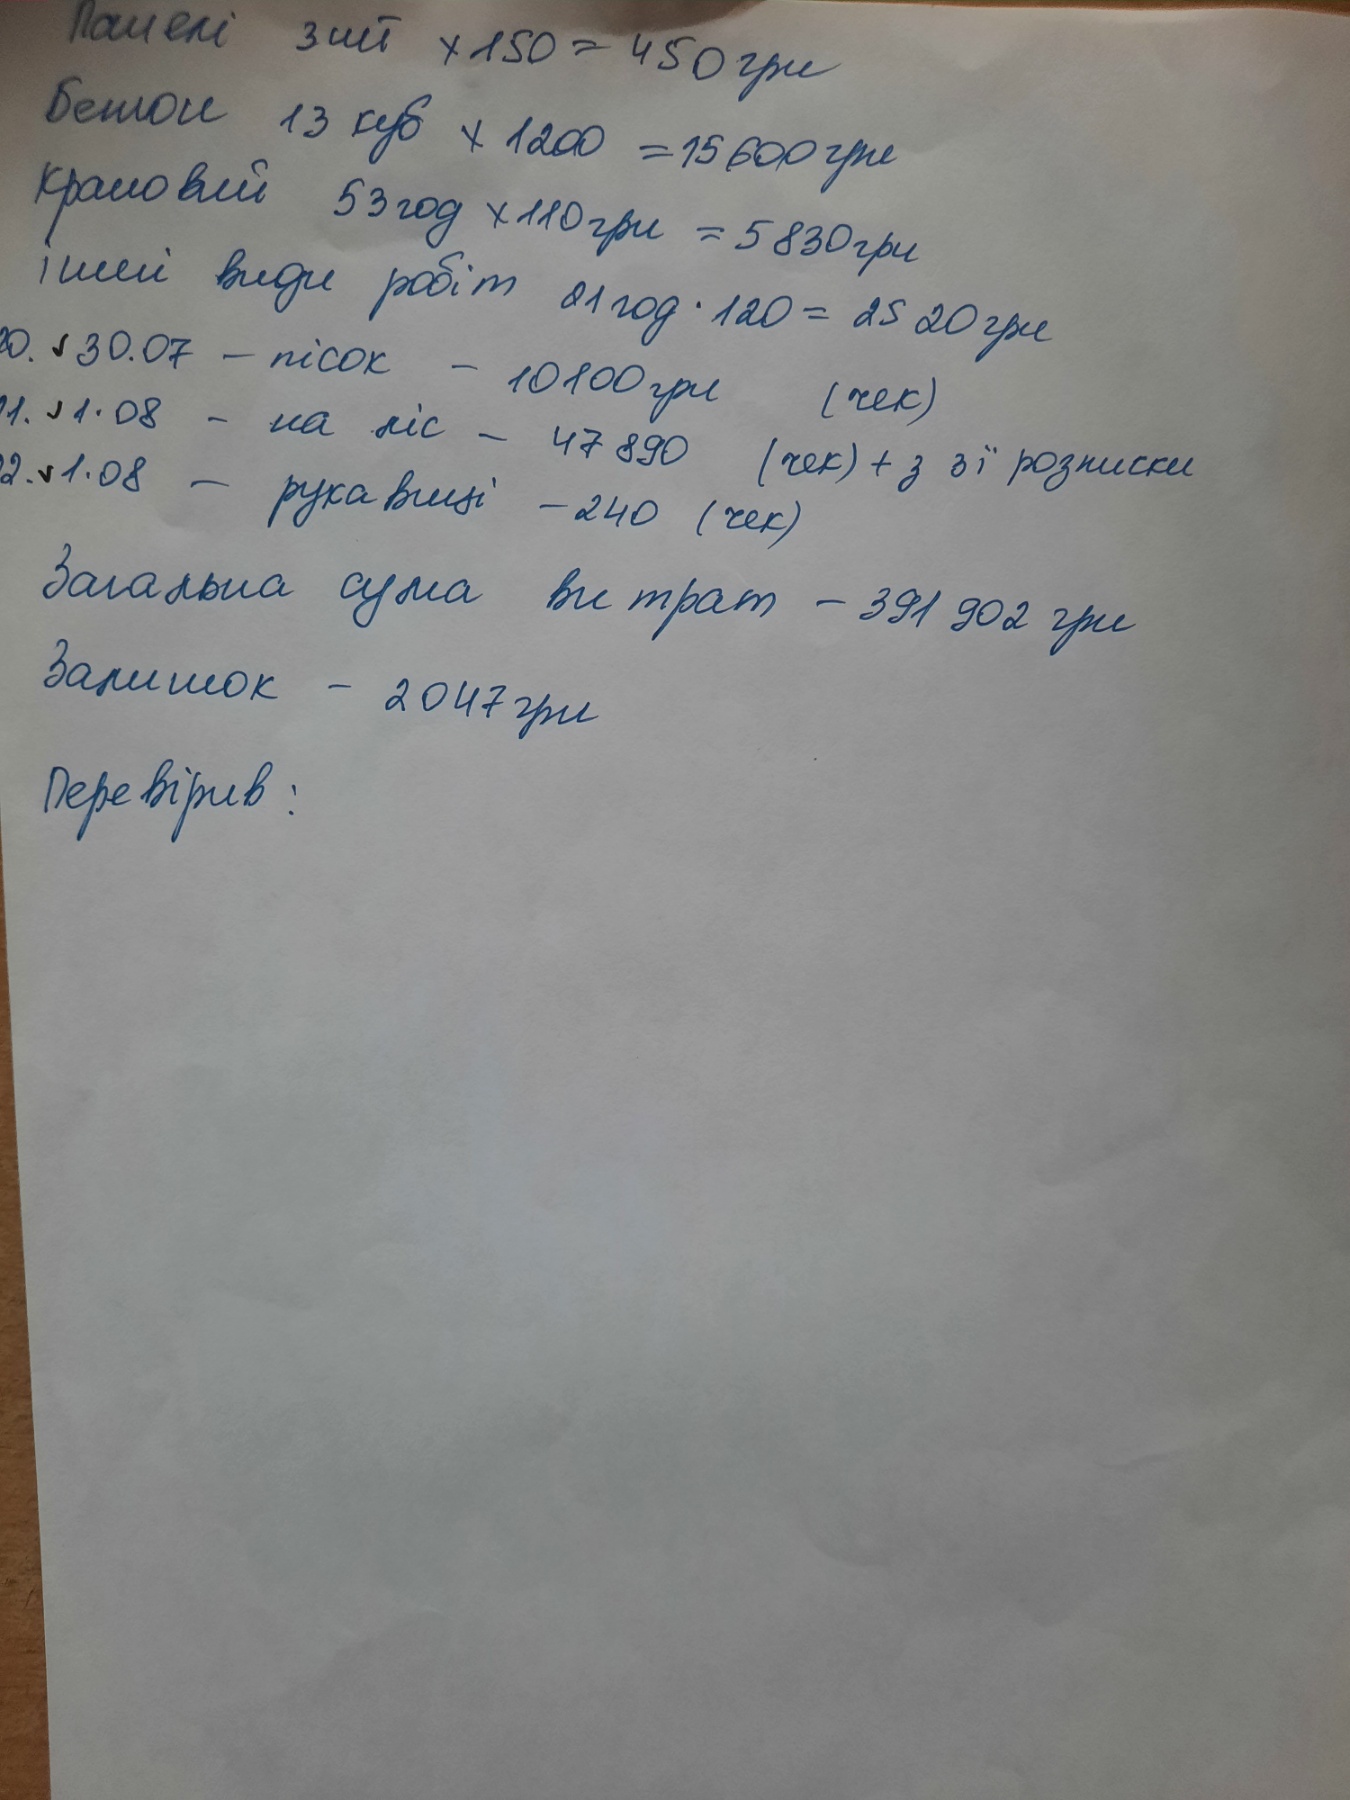 Панелі 3шт x 150 = 450грн
Бетон 13 куб x 1200 = 15600грн
Крановий 53год x 110грн = 5830грн
інші види робіт 21год · 120 = 2520грн
20. ✓ 30.07 – пісок – 10100грн (чек)
21. ✓ 1.08 – на ліс – 47890 (чек) + 3 зї розписки
22. ✓ 1.08 – рукавиці – 240 (чек)
Загальна сума витрат – 391 902 грн
Залишок – 2047грн
Перевірив: